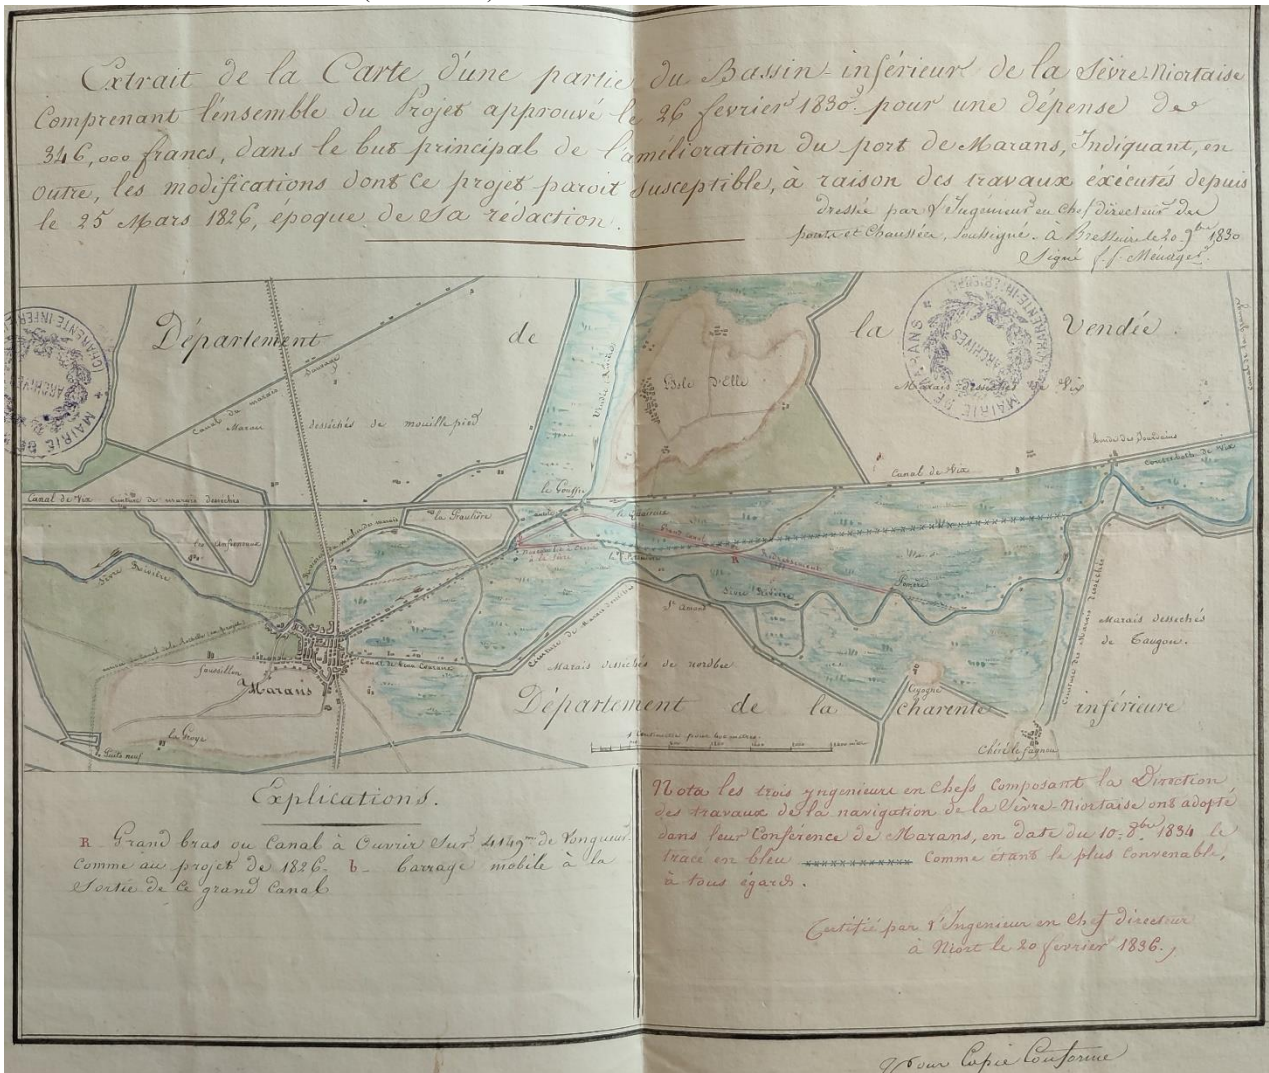 Extrait de la Carte d'une partie du Bassin-inférieur de la Sèvre-Niortaise
Comprenant l'ensemble du Projet approuvé le 26 fevrier 1830. pour une dépense de
346,000 francs, dans le but principal de l'amélioration du port de Marans, Indiquant, en
outre, les modifications dont ce projet paroit susceptible, à raison des travaux éxécutés depuis
le 25 Mars 1826, époque de sa rédaction.
Dressée par l'Ingénieur en chef directeur des
ponts et Chaussées, Soussigné. à Bressuire le 20. 9bre 1830
Signé f. f. Ménager
Département de la Vendée.
MAIRIE DE MARANS
ARCHIVES
CHARENTE INFERIEURE
MAIRIE DE
ARCHIVES
CHARENTE INFER
Isle d'Elle
Marais desséchés de Vix
Canal du marais Sauvage
Marais desséchés de mouillepied
Vieille Autise
bonde des Jourdains
Contrebooth de Vix
Canal de Vix
le Gouffre
Canal de Vix
Ceinture de marais desséchés
la Grautière
Grand Canal
Redressement
Sèvre Rivière
Sèvre Rivière
St Amand
Pomère
Ceinture des Marais desséchés
Marais desséchés
de Taugon.
Marais desséchés de nordbec
Canal de
Marans
la Groye
le Porte neuf
Cygogne
Département de la charente inférieure
Explications.
R Grand bras ou Canal à Ouvrir Sur 4149m de longueur
comme au projet de 1826. b- barrage mobile à la
Sortie de ce grand Canal
Nota les trois yngenieurs en Chefs, Composant la Direction
des travaux de la navigation de la Sèvre-Niortaise ont adopté
dans leur Conférence de Marans, en date du 10-8bre 1834 le
tracé en bleu xxxxxxxxxxxx Comme étant le plus convenable,
à tous égards.
Certifié par l'Ingenieur en Chef directeur
à Niort le 20 fevrier 1836.
Pour Copie Conforme